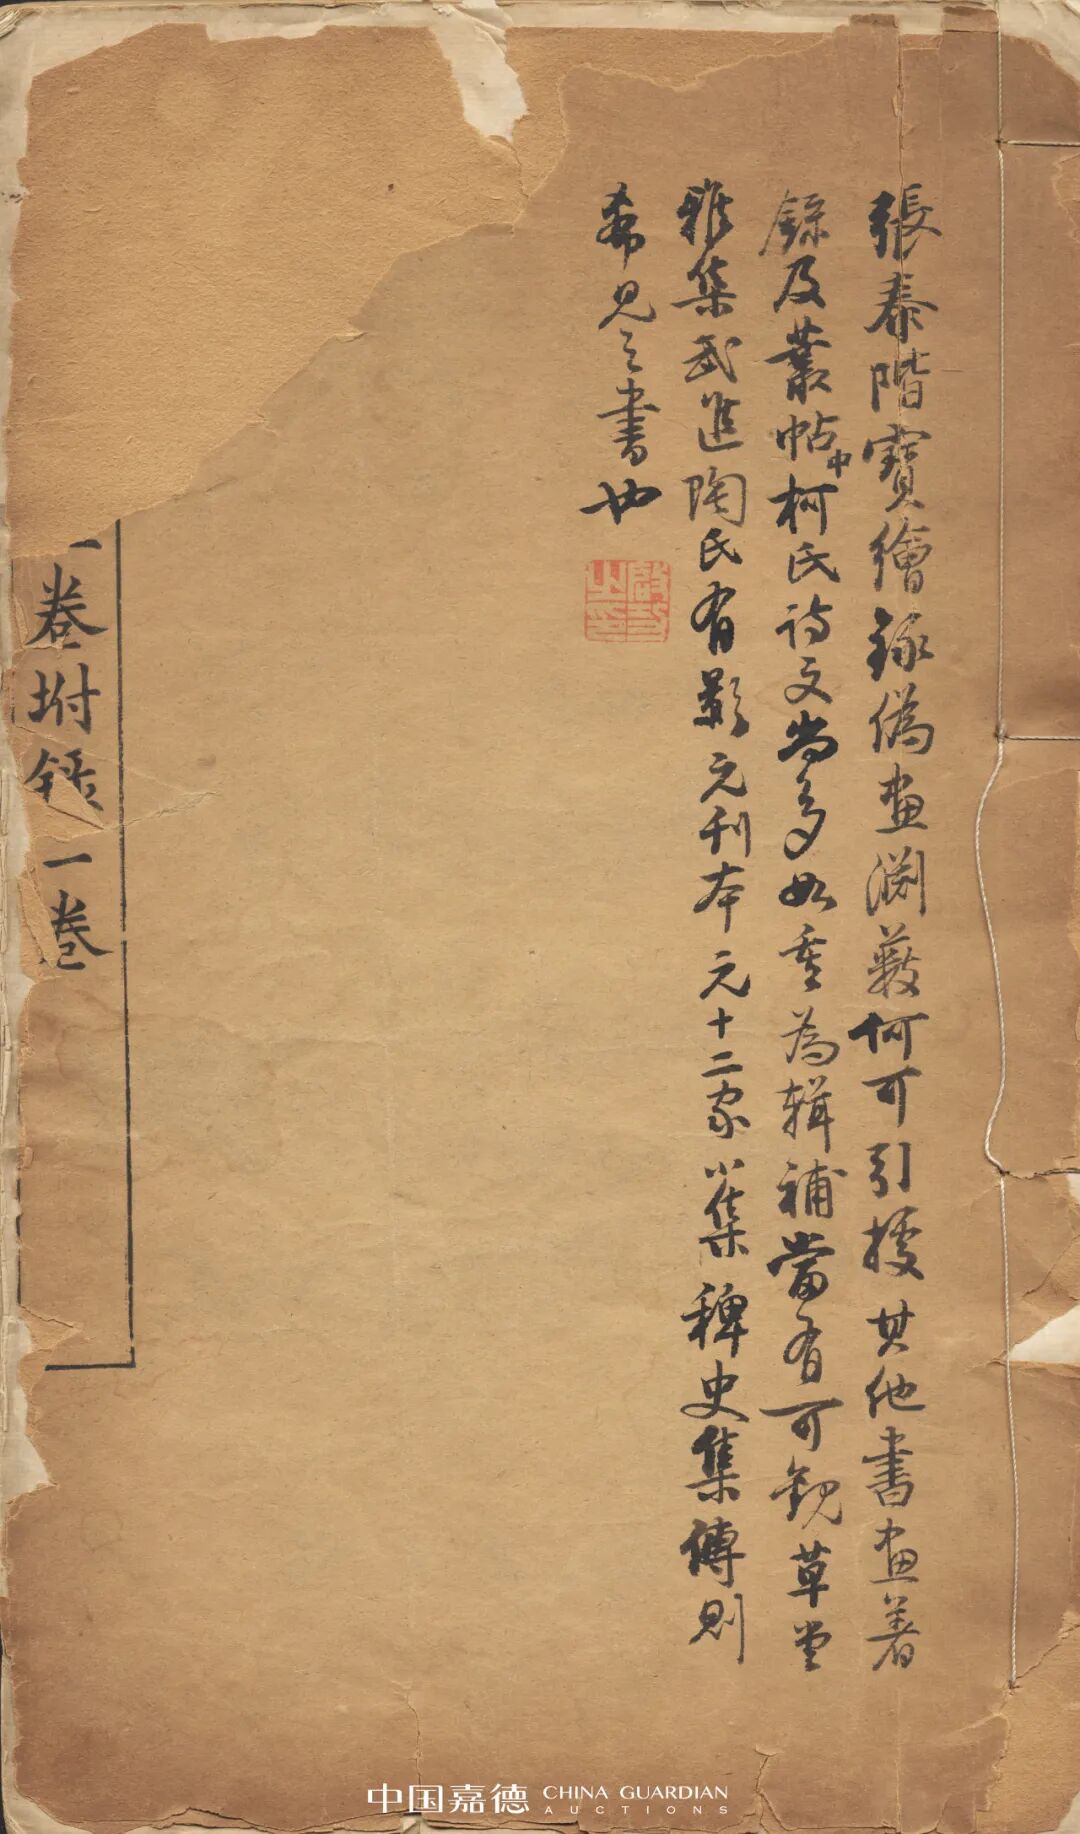 張泰階寶繪錄偽畫淵薮何可引據其他書畫著
錄及叢帖中柯氏诗文尚多如重為輯補當有可觀草堂
雅集武進陶氏有影元刊本元十二家小集稗史集傳則
希見之書也
啟功之印
一卷坿錄一卷
中国嘉德 CHINA GUARDIAN
AUCTIONS